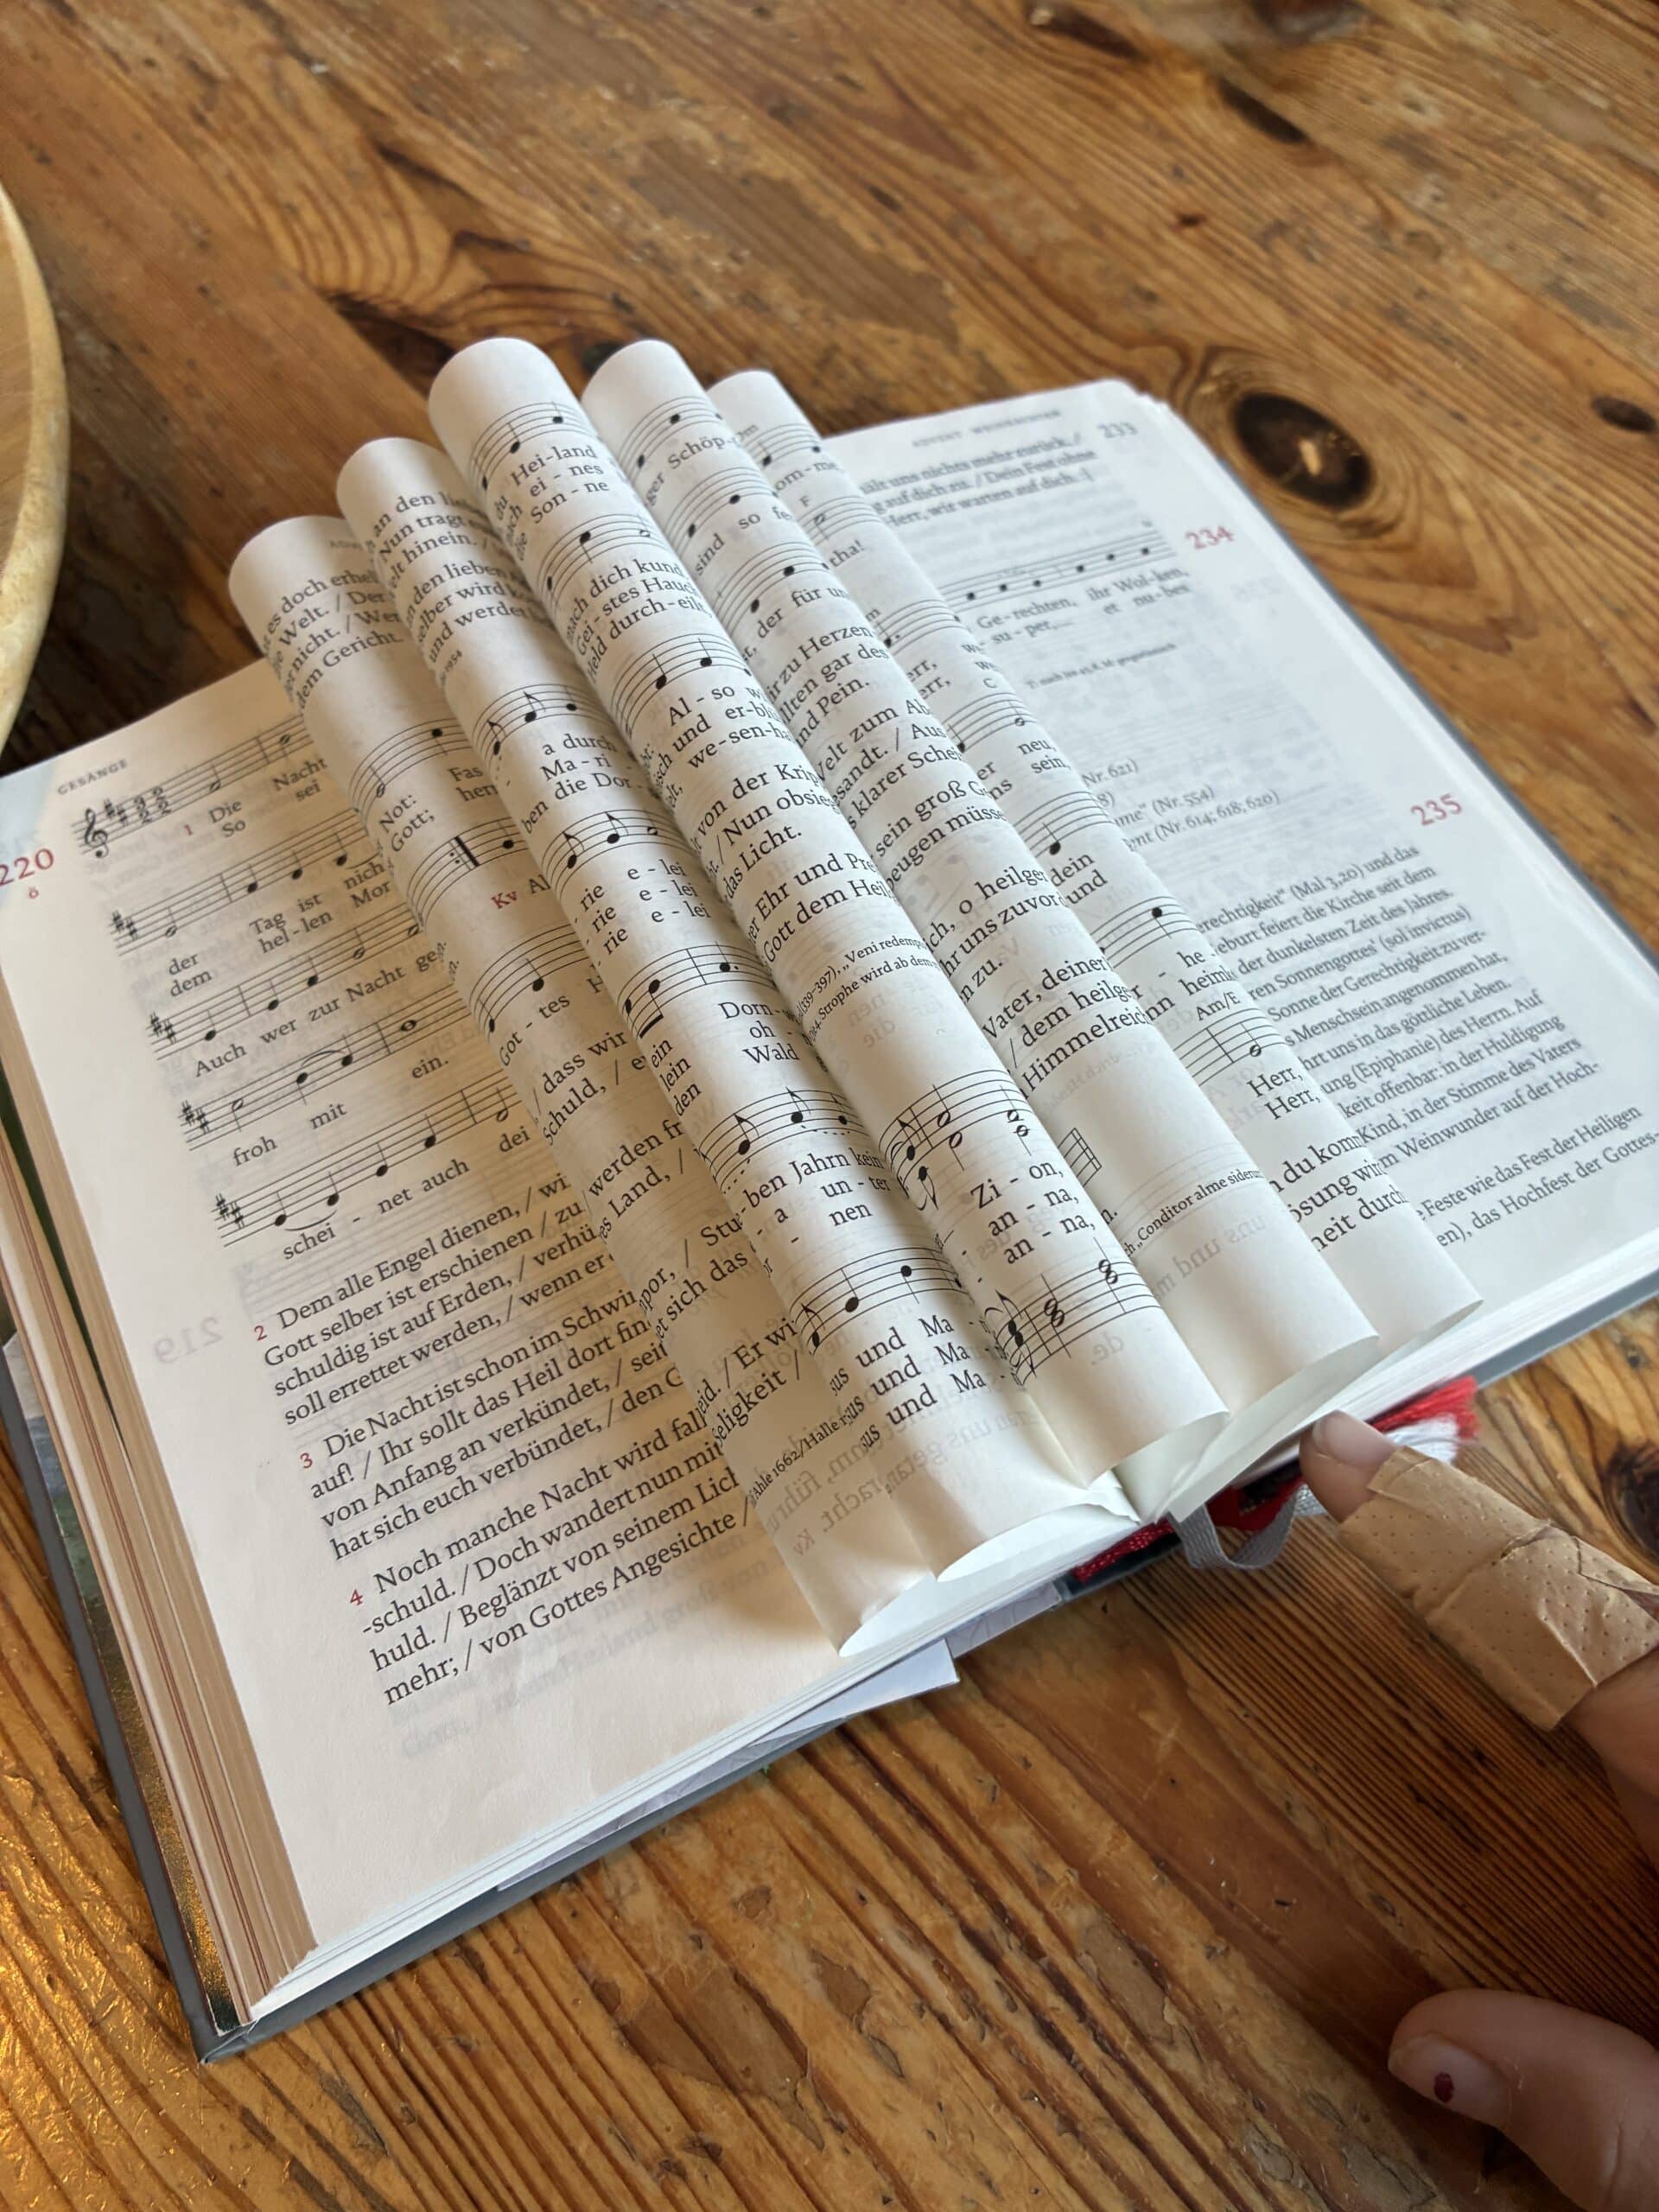 GESÄNGE
220
ö
1 Die Nacht
So sei
der Tag ist nich
dem hel-len Mor
Auch wer zur Nacht ge
froh mit ein.
schei - net auch dei
2 Dem alle Engel dienen, / wi
Gott selber ist erschienen / zu
schuldig ist auf Erden, / verhü
soll errettet werden, / wenn er
3 Die Nacht ist schon im Schwin
auf! / Ihr sollt das Heil dort fin
von Anfang an verkündet, / seit
hat sich euch verbündet, / den G
4 Noch manche Nacht wird fal
-schuld. / Doch wandert nun mit
huld. / Beglänzt von seinem Lich
mehr; / von Gottes Angesichte /
219
es doch erhel
e Welt. / Der
nicht. / Wer
dem Gericht.
Not: Fas
Gott; hen
Kv Al
Got - tes H
/ dass wir
schuld, / e
werden fr
es Land, /
an den lie
Nun tragt
elt hinein. /
den lieben
selber wird
und werdet
1954
a durch
Ma - ri
ben die Dor -
rie e - lei
rie e - lei
rie e - lei
ein Dorn-
lein oh -
den Wald
ben Jahrn kein
a un - ter
nen
sus und Ma -
sus und Ma -
sus und Ma -
por, / Stu
et sich das
eid. / Er wi
eligkeit /
Ahle 1662/Halle
du Hei-land
nach ei - nes
die Son - ne
mach dich kund
Gei - stes Hauch
Held durch-eilt
Al - so w
isch und er-bl
we-sen-ha
von der Krip
/ Nun obsie
das Licht.
er Ehr und Pre
Gott dem Heil
(339–397), „Veni redemp
Strophe wird ab dem
Zi - on,
an - na,
an - na,
ger Schöp
sind so fe
der für un
ir zu Herzen
llten gar des
nd Pein.
Welt zum Ab
esandt. / Aus
s klarer Schei
sein groß G
beugen müsse
ich, o heilger
hr uns zuvor
n zu.
Vater, deinem
/ dem heilge
Himmelreich
„Conditor alme siderum
om-me
F
tha!
err, we
err, we
C
neu,
sein,
dein
und
- he
nn heim
Am/E
Herr,
Herr,
du komm
ösung wi
heit durch
ADVENT WEIHNACHTEN 233
hält uns nichts mehr zurück. /
g auf dich zu. / Dein Fest ohne
Herr, wir warten auf dich.
234
Ge-rechten, ihr Wol-ken,
su - per,... et nu-bes
T: nach Jes 45,8, M: gregorianisch
Nr. 621)
8)
me“ (Nr. 554)
mt (Nr. 614; 618; 620)
235
erechtigkeit“ (Mal 3,20) und das
eburt feiert die Kirche seit dem
der dunkelsten Zeit des Jahres.
ren Sonnengottes‘ (sol invictus)
Sonne der Gerechtigkeit zu ver-
s Menschsein angenommen hat,
hrt uns in das göttliche Leben.
ung (Epiphanie) des Herrn. Auf
keit offenbar: in der Huldigung
Kind, in der Stimme des Vaters
m Weinwunder auf der Hoch-
e Feste wie das Fest der Heiligen
en), das Hochfest der Gottes-